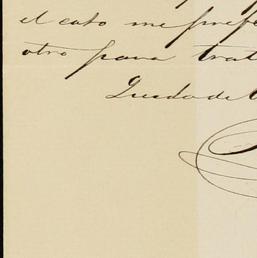 el caso me prefe
otro para trat
Quedo de